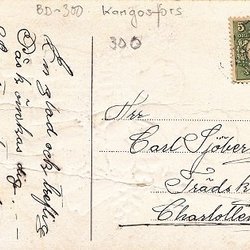 BD-300 Kangosfors
300
5
En glad och treflig
Påsk önskas dig
Herr
Carl Sjöber
Trädsk
Charlotte